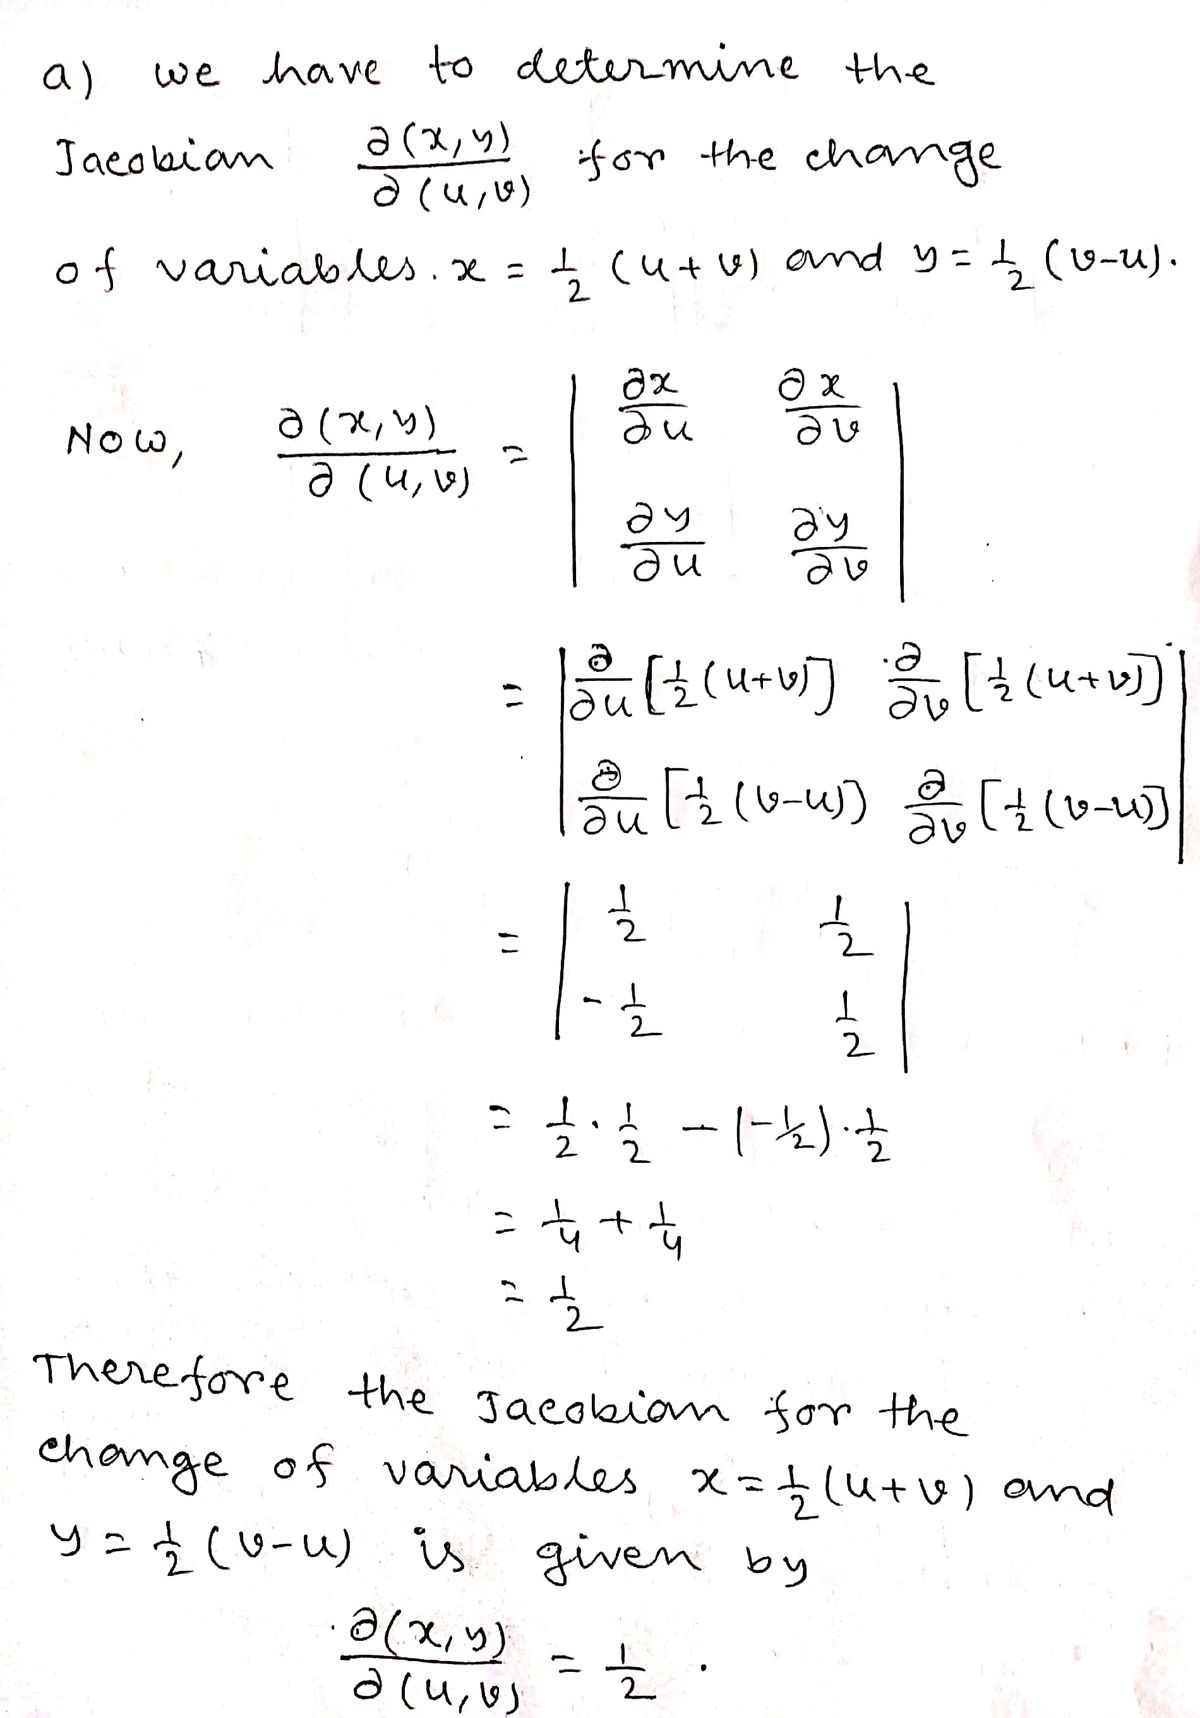 a) we have to determine the
Jacobian ∂(x,y)/∂(u,v) for the change
of variables. x = 1/2 (u+v) and y = 1/2 (v-u).
Now, ∂(x,y)/∂(u,v) = | ∂x/∂u ∂x/∂v |
| ∂y/∂u ∂y/∂v |
= | ∂/∂u [1/2(u+v)] ∂/∂v [1/2(u+v)] |
| ∂/∂u [1/2(v-u)) ∂/∂v [1/2(v-u)] |
= | 1/2 1/2 |
| -1/2 1/2 |
= 1/2 · 1/2 - (-1/2) · 1/2
= 1/4 + 1/4
= 1/2
Therefore the Jacobian for the
change of variables x = 1/2 (u+v) and
y = 1/2 (v-u) is given by
∂(x,y)/∂(u,v) = 1/2 .